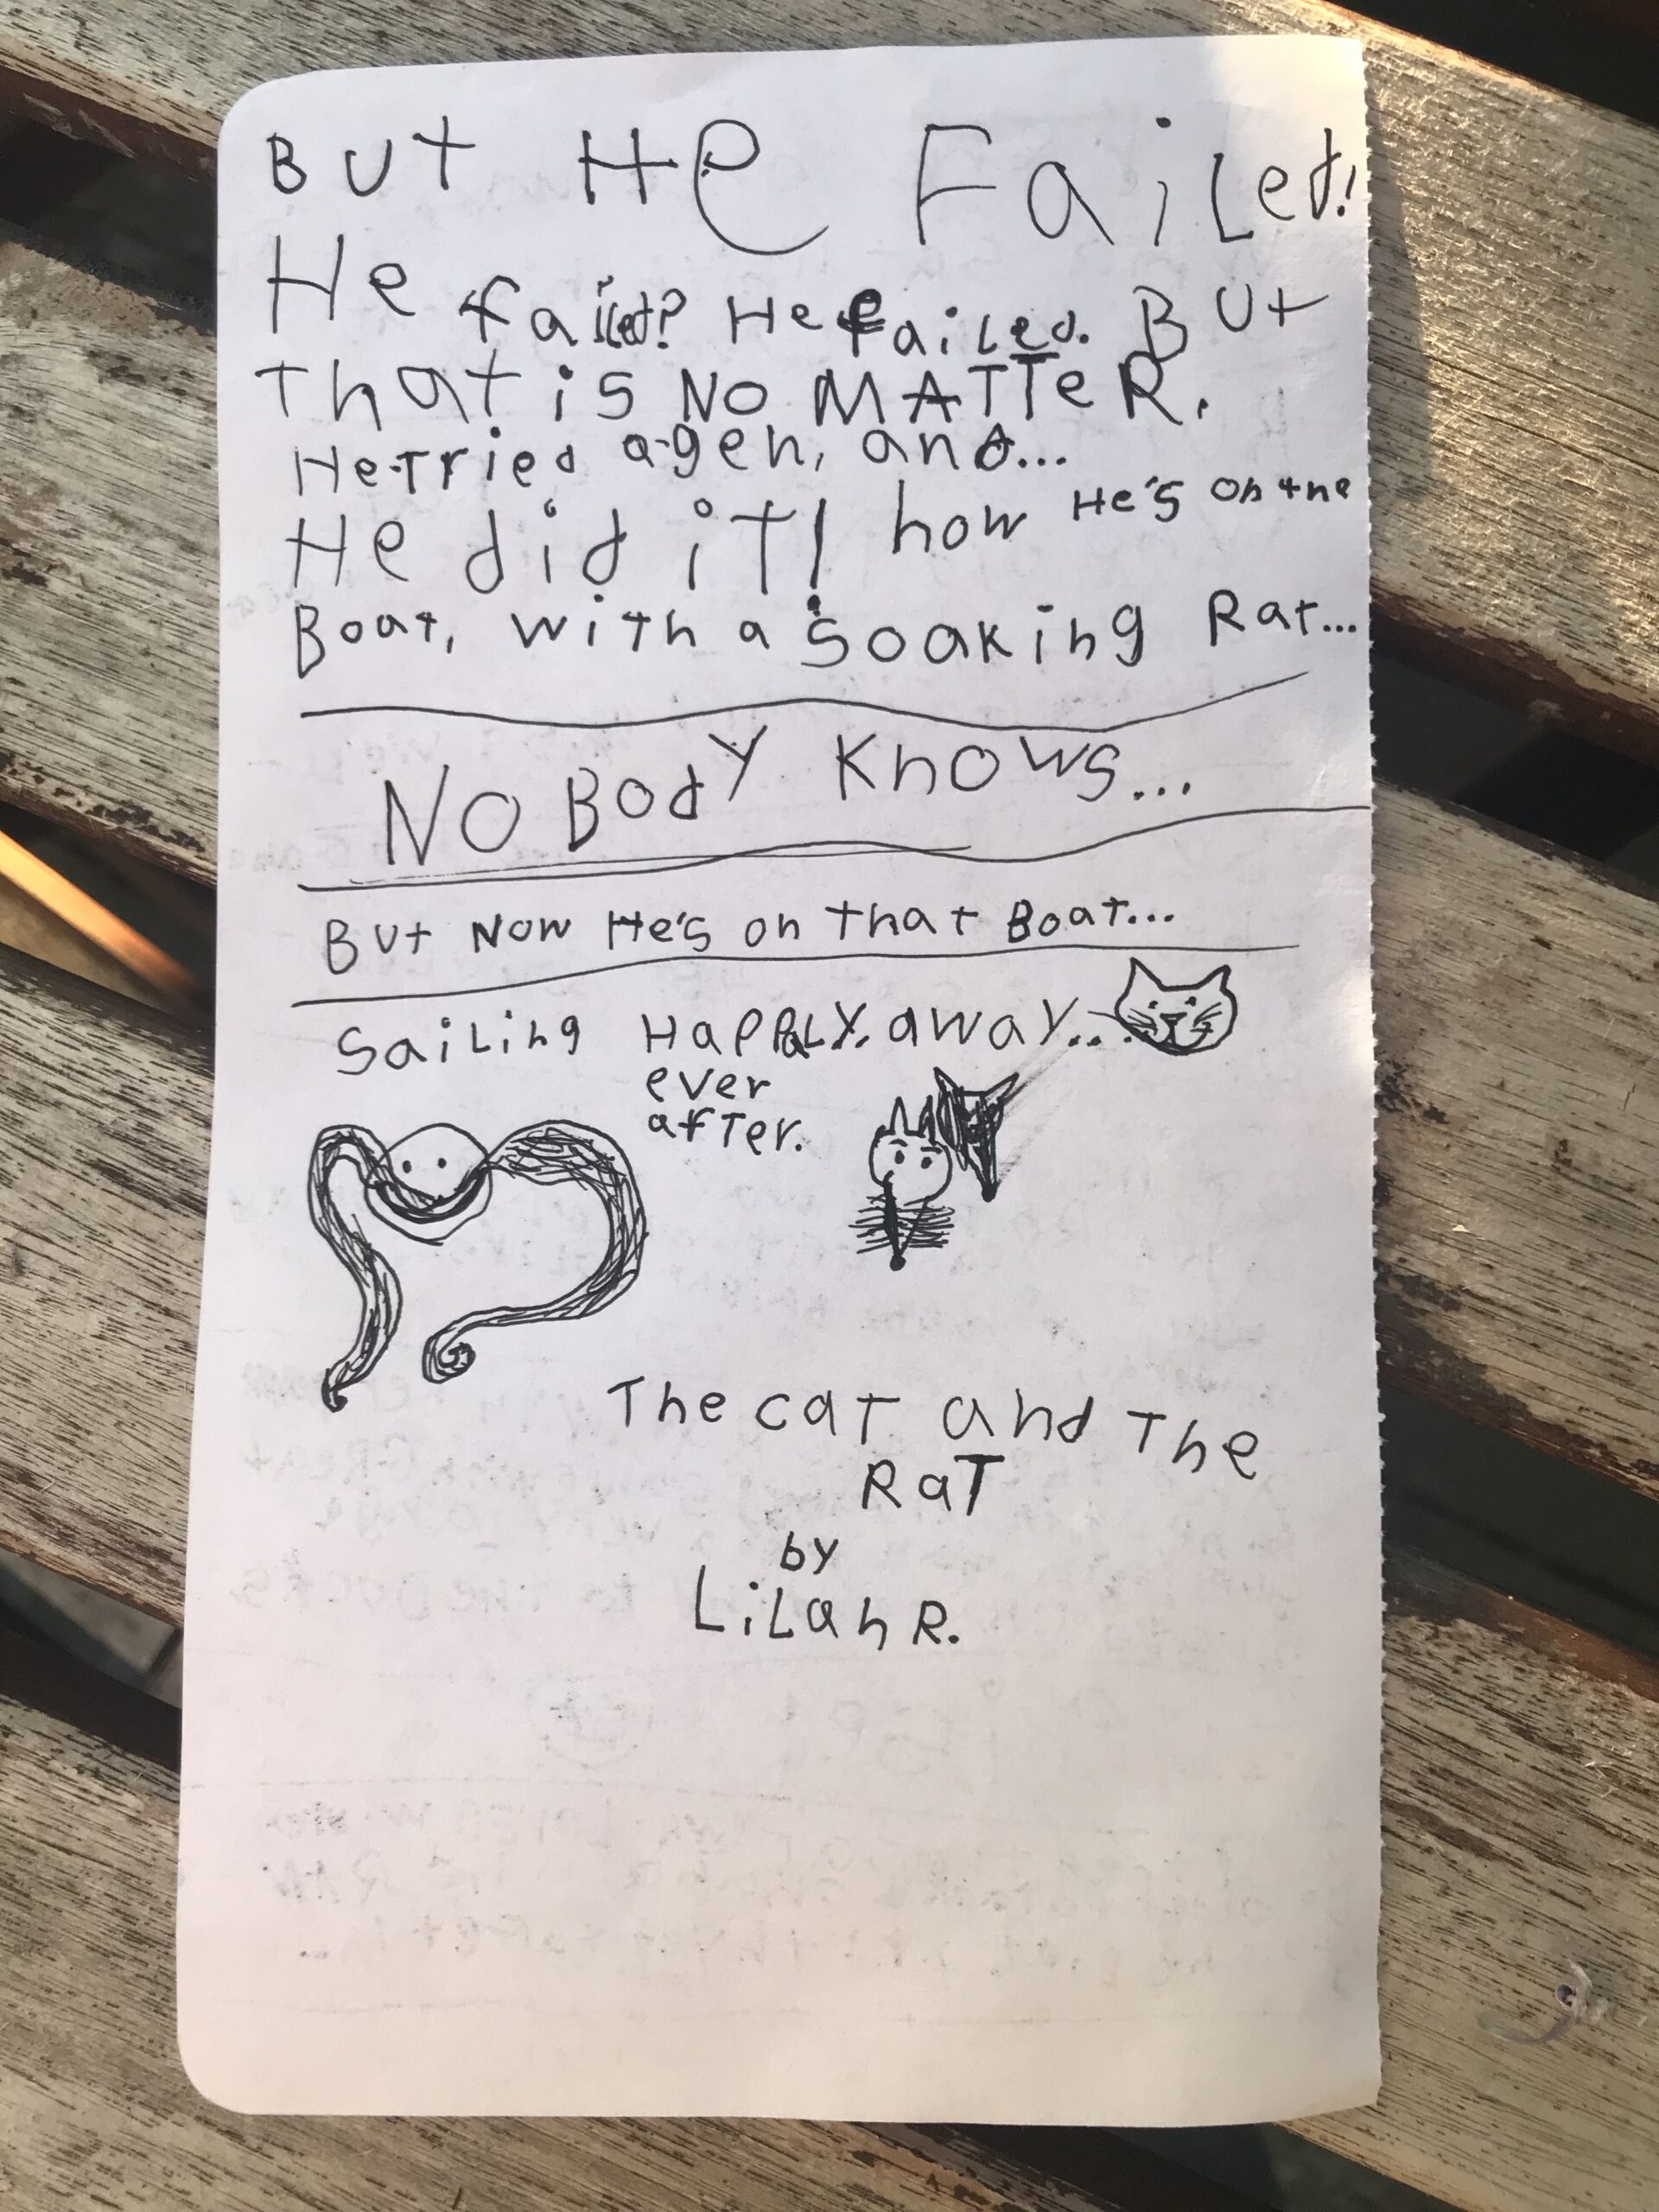 BUT He Failed!
He failed? He failed. BUt
that is NO MATTeR.
He tried agen, and...
He did iT! how He's on the
Boat, with a soaking Rat...
NOBOdY Knows...
BUt Now He's on that Boat...
Sailing HapPaLY. away...
ever
after.
The cat and The
RaT
by
LiLah R.